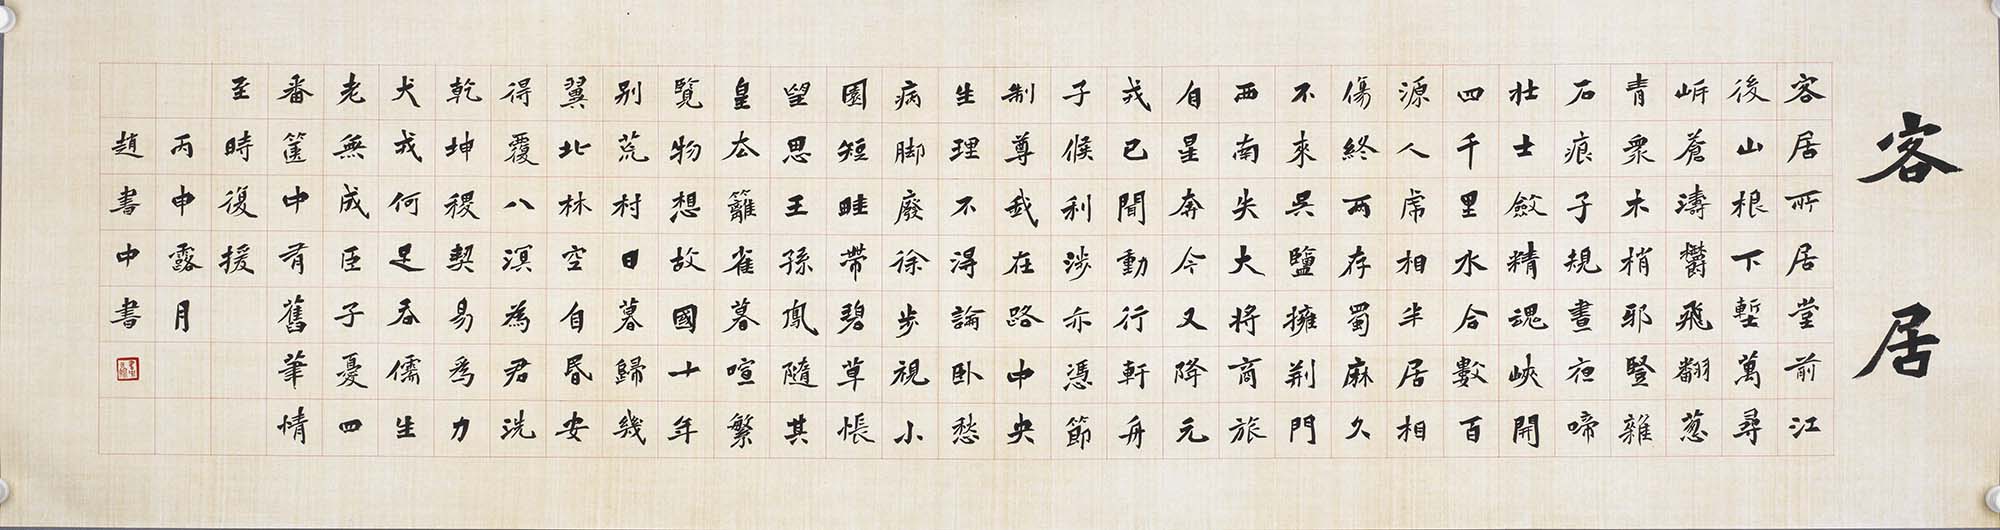 客居
客居所居堂前江
後山根下塹萬尋
岸蒼濤鬱飛翻葱
青衆木梢耶豎雜
石痕子規晝夜啼
壯士斂精魂峽開
四千里水合數百
源人虎相半居相
傷終兩存蜀麻久
不來吳鹽擁荆門
西南失大將商旅
自星奔今又降元
戎已聞動行軒舟
子候利涉亦憑節
制尊我在路中央
生理不得論卧愁
病脚廢徐步視小
園短畦帶碧草悵
望思王孫鳳隨其
皇去籬雀暮喧繁
覽物想故國十年
别荒村日暮歸幾
翼北林空自昏安
得覆八溟為君洗
乾坤稷契易為力
犬戎何足吞儒生
老無成臣子憂四
番篋中有舊筆情
至時復援
丙申露月
趙書中書